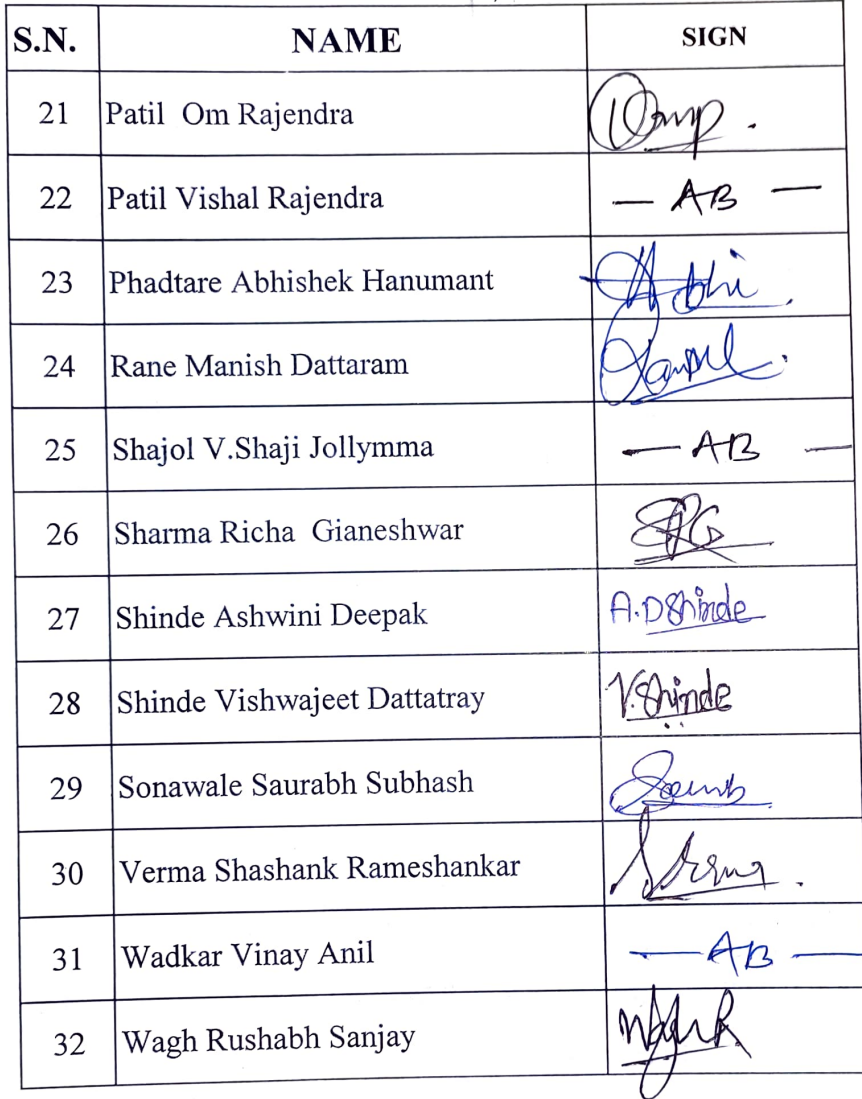 S.N. NAME SIGN
21 Patil Om Rajendra Omp.
22 Patil Vishal Rajendra — AB —
23 Phadtare Abhishek Hanumant Abhi.
24 Rane Manish Dattaram
25 Shajol V.Shaji Jollymma — AB —
26 Sharma Richa Gianeshwar
27 Shinde Ashwini Deepak A.DShinde
28 Shinde Vishwajeet Dattatray V.Shinde
29 Sonawale Saurabh Subhash
30 Verma Shashank Rameshankar
31 Wadkar Vinay Anil — AB —
32 Wagh Rushabh Sanjay